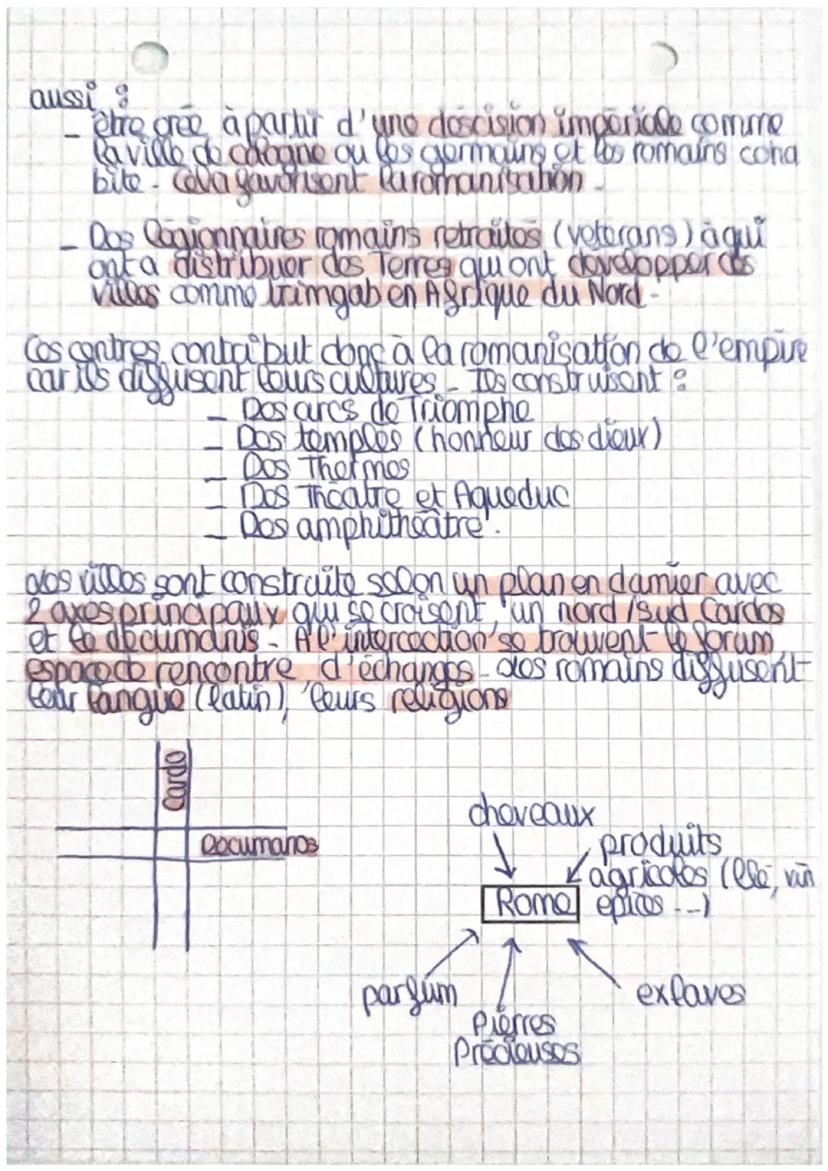 aussi :
- être crée à partir d'une déscision impériale comme
la ville de cologne ou les germains et les romains coha
bite - Cela favorisent la romanisation -
- Des légionnaires romains retraités (veterans) à qui
ont a distribuer des Terres qui ont developper des
villes comme trimgab en Afrique du Nord -
Ces centres contribut donc à la romanisation de l'empire
car ils diffusent leurs cultures - Ils construisent :
- Des arcs de Triomphe
- Des temples (honneur des dieux)
- Des Thermes
- Des Théatre et Aqueduc
- Des amphithéâtre.
Les villes sont construite selon un plan en damier avec
2 axes principaux qui se croisent, un nord/sud Cardos
et le décumanis - A l'intercection se trouvent le forum
espace de rencontre d'échanges - Les romains diffusent
leur langue (latin), leurs religions
Cardo
Decumanos
cheveaux
produits
agricoles (blé, vin
epices ...)
Rome
parfum
exlaves
Pierres
Précieuses